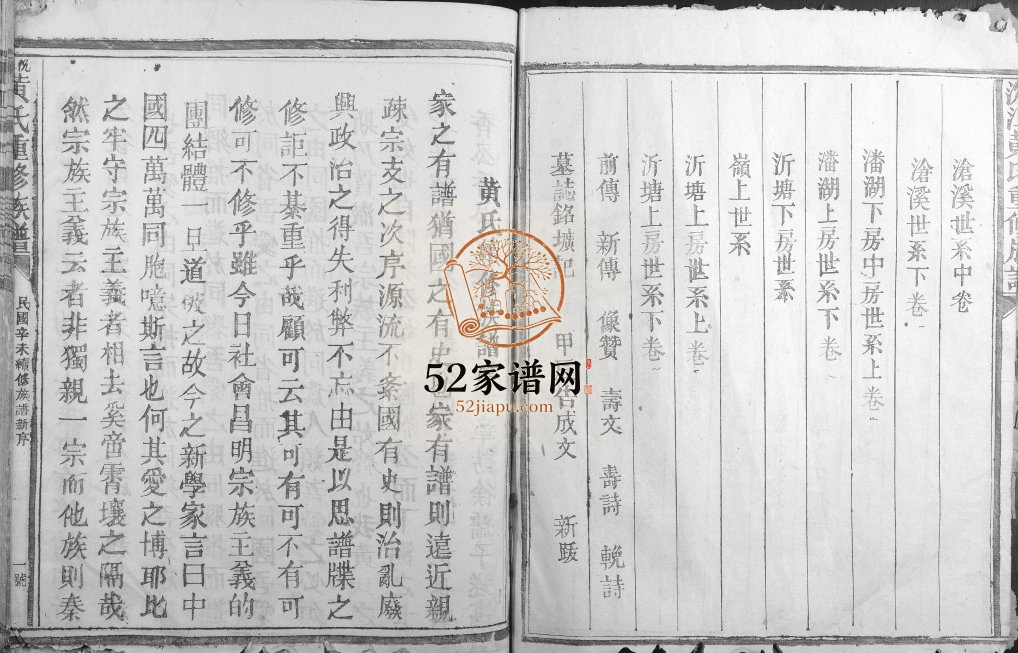 黃氏重修族譜
滄溪世系中卷
滄溪世系下卷
潘湖下房中房世系上卷
潘湖上房世系下卷
沂塘下房世系
嶺上世系
沂塘上房世系上卷
沂塘上房世系下卷
前傳 新傳 像贊 壽文 壽詩 輓詩
墓誌銘壙記 甲 告成文 新跋
黃氏 修族譜
家之有譜猶國之有史 家有譜則遠近親
疎宗支之次序源流不紊國有史則治亂廢
興政治之得失利弊不忘由是以思譜牒之
修詎不綦重乎哉顧可云其可有可不有可
修可不修乎雖今日社會昌明宗族主義的
團結體一早道破之故今之新學家言曰中
國四萬萬同胞噫斯言也何其愛之博耶此
之牢守宗族主義者相去奚啻霄壤之隔哉
然宗族主義云者非獨親一宗而他族則秦
黃氏重修族譜
民國辛未續修族譜新序
一號
52家谱网
52jiapu.com